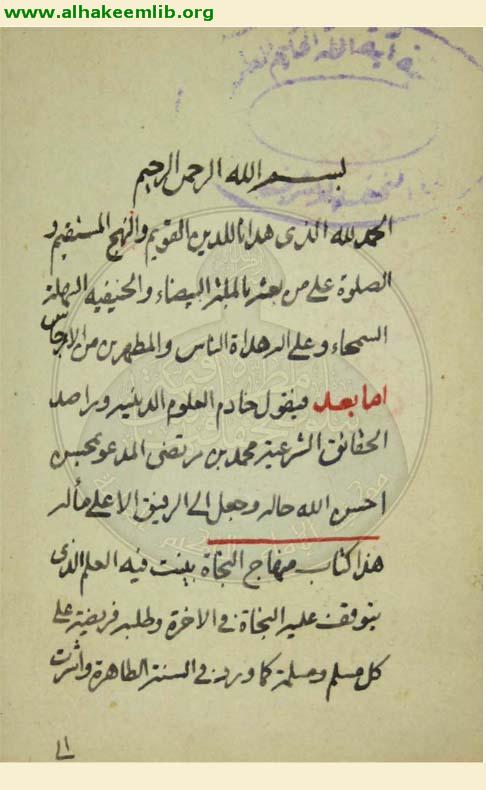 www.alhakeemlib.org
بسم الله الرحمن الرحيم
الحمد لله الذى هدانا للدين القويم والنهج المستقيم و
الصلوة على من بعثه بالملة البيضاء والحنيفيه السهلة
السمحاء وعلى اله هداة الناس والمطهرين من الارجاس
اما بعد فيقول خادم العلوم الدينيه وراصد
الحقائق الشرعية محمد بن مرتضى المدعو بمحسن
احسن الله حاله وجعل الى الرفيق الاعلى مأله
هذا كتاب منهاج النجاة بينت فيه العلم الذى
يتوقف عليه النجاة فى الاخرة وطلبه فريضة على
كل مسلم ومسلمة كما ورد فى السنة الطاهرة واشرت
الى